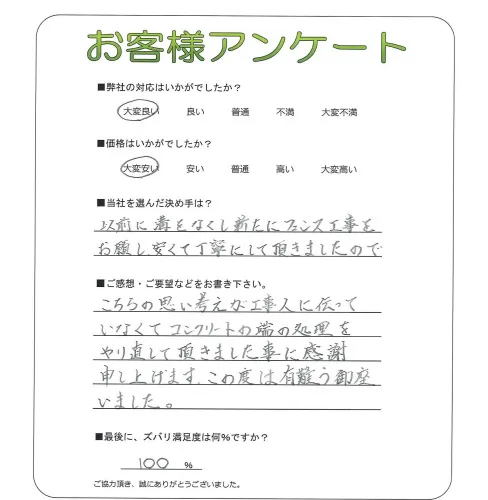 お客様アンケート
■弊社の対応はいかがでしたか？
大変良い 良い 普通 不満 大変不満
■価格はいかがでしたか？
大変安い 安い 普通 高い 大変高い
■当社を選んだ決め手は？
以前に溝をなくし新たにフェンス工事を
お願し安くて丁寧にして頂きましたので
■ご感想・ご要望などをお書き下さい。
こちらの思い考えが工事人に伝って
いなくてコンクリートの端の処理を
やり直して頂きました事に感謝
申し上げます この度は有難う御座
いました。
■最後に、ズバリ満足度は何％ですか？
100 ％
ご協力頂き、誠にありがとうございました。